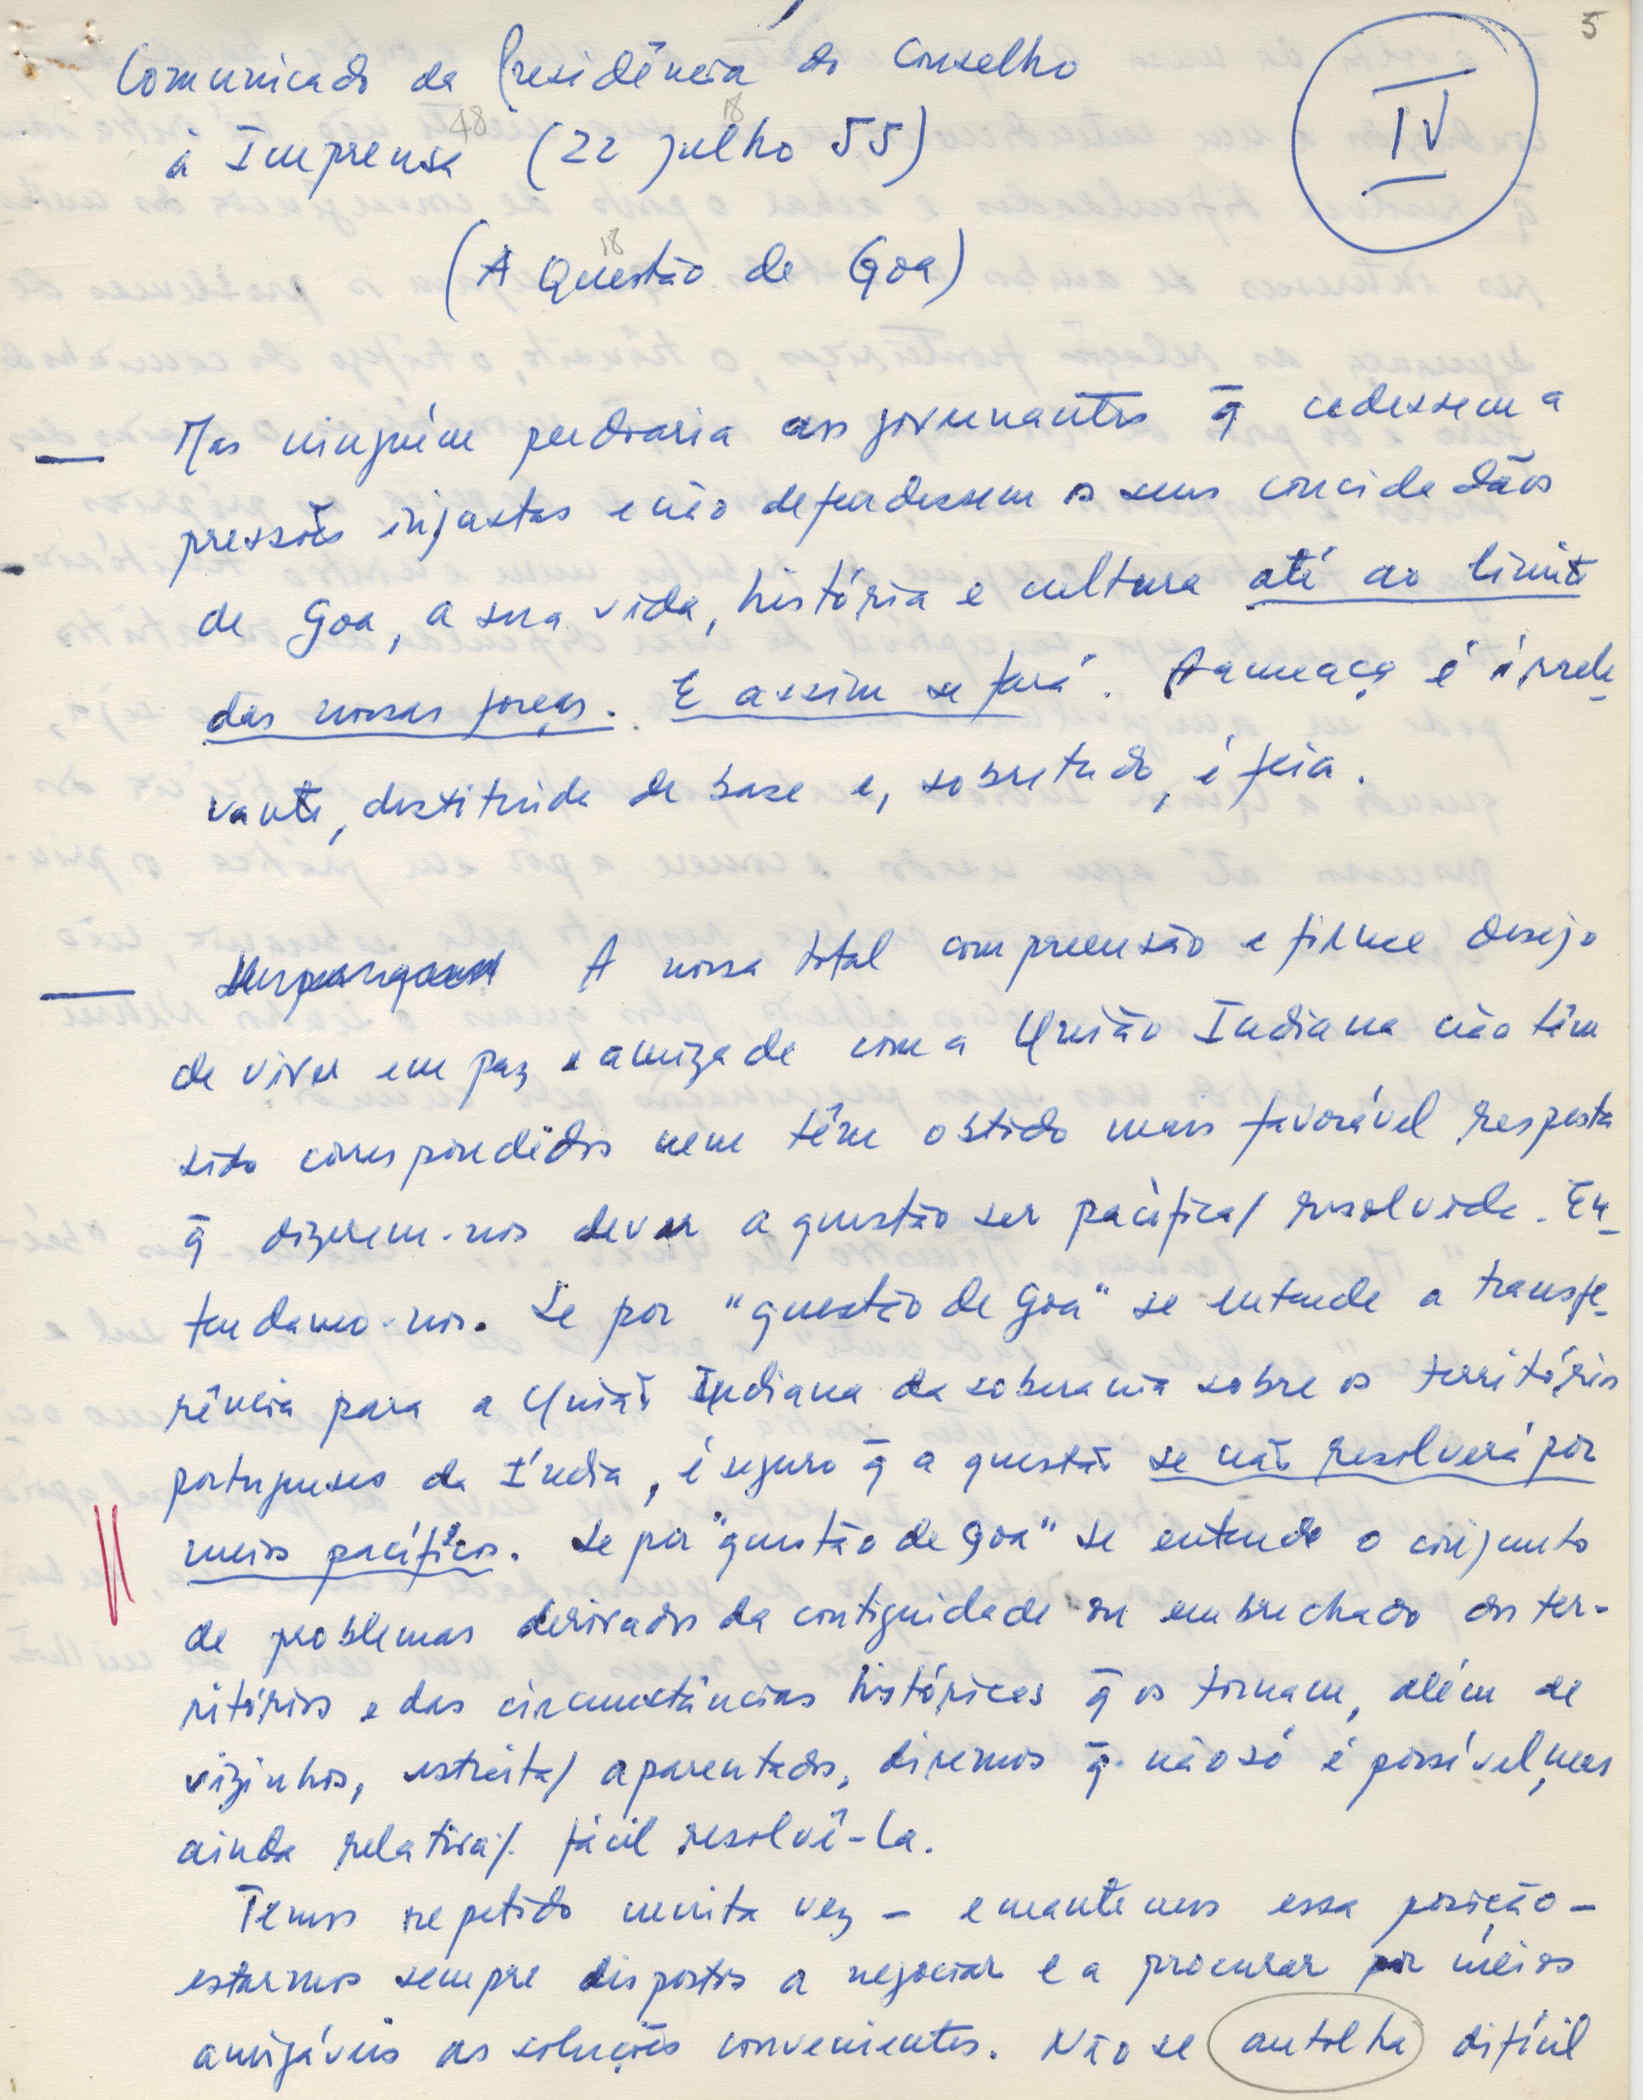 5
Comunicado da Presidência do Conselho
IV
48 18
à Imprensa (22 julho 55)
18
(A Questão de Goa)
— Mas ninguém perdoaria aos governantes q̄ cedessem a
pressões injustas e não defendessem os seus concidadãos
de Goa, a sua vida, história e cultura até ao limite
das nossas forças. E assim se fará. A ameaça é irrele-
vante, destituida de base e, sobretudo, é feia.
— A nossa total compreensão e firme desejo
de viver em paz e amizade com a União Indiana não têm
sido correspondidos nem têm obtido mais favorável resposta
q̄ dizerem-nos dever a questão ser pacífica/ resolvida. En-
tendamo-nos. Se por "questão de Goa" se entende a transfe-
rência para a União Indiana da soberania sobre os territórios
portugueses da Índia, é seguro q̄ a questão se não resolverá por
meios pacíficos. Se por "questão de Goa" se entende o conjunto
de problemas derivados da contiguidade ou embrechado dos ter-
ritórios e das circunstâncias históricas q̄ os tornam, além de
vizinhos, estreita/ aparentados, diremos q̄ não só é possível, mas
ainda relativa/. fácil resolvê-la.
Temos repetido muita vez – e mantemos essa posição –
estarmos sempre dispostos a negociar e a procurar por meios
amigáveis as soluções convenientes. Não se antolha difícil